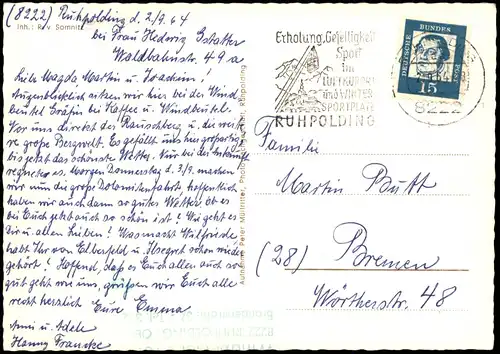 (8222) Ruhpolding d. 2/9.64
Inh.: R. v. Somnitz
bei Frau Hedwig Gstatter
Waldbahnstr. 49 a
Liebe Magda, Martin u. Joachim!
Augenblicklich sitzen wir hier bei der Wind
beutel Gräfin bei Kaffee u. Windbeutel.
Vor uns direkt der Rauschberg u. die weite
re große Bergwelt. Es gefällt uns hier großartig
bis jetzt das schönste Wetter. Nur bei der Ankunft
regnete es. Morgen Donnerstag d. 3/9. machen
wir nun die große Dolomitenfahrt, hoffentlich
haben wir auch dann so gutes Wetter. Ob es
bei Euch jetzt auch so schön ist? Wie geht es
Dir u. allen Lieben? Was macht Wilfriede
habt Ihr von Elberfeld u. Ilsegret schon wieder
gehört? Hoffend, daß es Euch allen auch so
gut geht wie uns, grüßen wir Euch alle
recht herzlich Eure Emma
Anni u. Adele
Hanny Francke
Authentic Peter Müllritter, Ruhpolding
Erholung, Geselligkeit
Sport
im
LUFTKURORT
und WINTER-
SPORTPLATZ
RUHPOLDING
DEUTSCHE BUNDES POST
15
8222
Familie
Martin Butt
(28) Bremen
Wörtherstr. 48